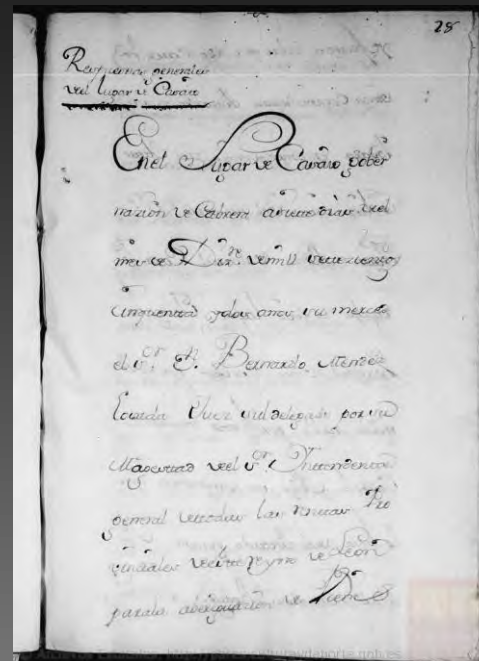 28
Respuestas generales
del lugar de
En el Lugar de Cavano gober
nazion de Cabrera a nueve dias del
mes de Dizre. de mill setezientos
cinquenta y dos años su merced
el sr. Dn. Bernardo Mendez
Juez subdelegado por su
Magestad del sr. Intendente
general de todas las rentas Pro
vinciales de este Reyno de León
para la aberiguazion de Vienes